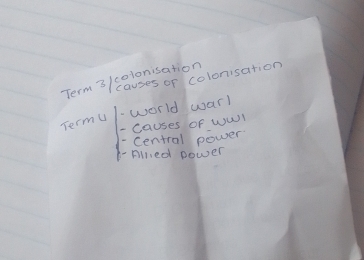 Term 3/colonisation
causes of colonisation
Term 4 - world war1
- causes of ww1
- Central power
- Allied power